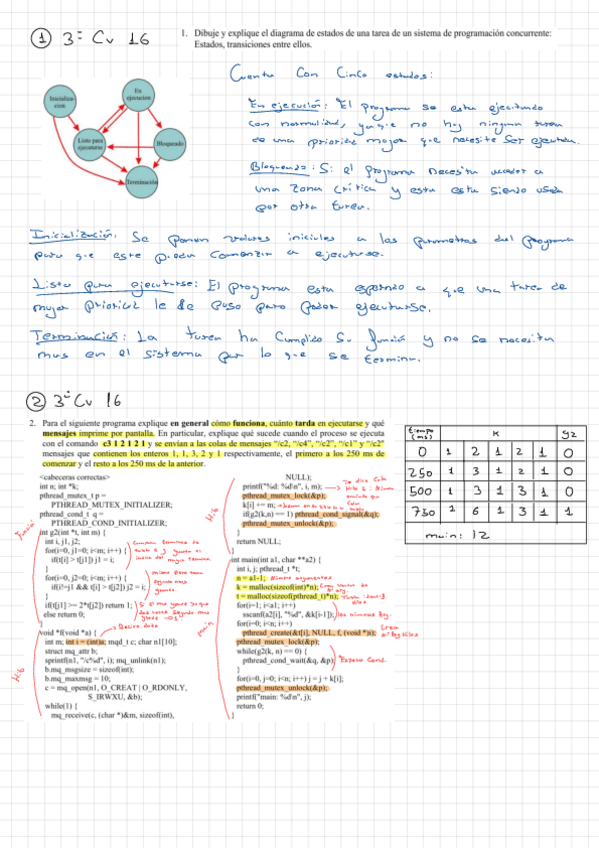 ① 3º Cv 16
1. Dibuje y explique el diagrama de estados de una tarea de un sistema de programación concurrente:
Estados, transiciones entre ellos.
Cuenta Con Cinco estados:
Inicializa-
cion
En
ejecucion
Listo para
ejecutarse
Bloqueado
Terminación
En ejecución: El programa se esta ejecutando
con normalidad, ya que no hay ninguna tarea
de una prioridad mayor que necesite ser ejecutada.
Bloqueado: Si el programa necesita acceder a
una zona crítica y esta esta siendo usada
por otra tarea.
Inicialización: Se ponen valores iniciales a los parametros del programa
para que este pueda comenzar a ejecutarse.
Listo para ejecutarse: El programa esta esperando a que una tarea de
mayor prioridad le de paso para poder ejecutarse.
Terminación: La tarea ha cumplido su función y no se necesita
mas en el sistema por lo que se termina.
② 3º Cv 16
2. Para el siguiente programa explique en general cómo funciona, cuánto tarda en ejecutarse y qué
mensajes imprime por pantalla. En particular, explique qué sucede cuando el proceso se ejecuta
con el comando c3 1 2 1 2 1 y se envían a las colas de mensajes "/c2, "/c4", "/c2", "/c1" y "/c2"
mensajes que contienen los enteros 1, 1, 3, 2 y 1 respectivamente, el primero a los 250 ms de
comenzar y el resto a los 250 ms de la anterior.
<cabeceras correctas>
int n; int *k;
pthread_mutex_t p =
PTHREAD_MUTEX_INITIALIZER;
pthread_cond_t q =
PTHREAD_COND_INITIALIZER;
int g2(int *t, int m) {
int i, j1, j2;
for(i=0, j1=0; i<m; i++) {
if(t[i] > t[j1]) j1 = i;
}
for(i=0, j2=0; i<m; i++) {
if(i!=j1 && t[i] > t[j2]) j2 = i;
}
if(t[j1] >= 2*t[j2]) return 1;
else return 0;
}
void *f(void *a) {
int m; int i = (int)a; mqd_t c; char n1[10];
struct mq_attr b;
sprintf(n1, "/c%d", i); mq_unlink(n1);
b.mq_msgsize = sizeof(int);
b.mq_maxmsg = 10;
c = mq_open(n1, O_CREAT | O_RDONLY,
S_IRWXU, &b);
while(1) {
mq_receive(c, (char *)&m, sizeof(int),
NULL);
printf("%d: %d\n", i, m);
pthread_mutex_lock(&p);
k[i] += m;
if(g2(k,n) == 1) pthread_cond_signal(&q);
pthread_mutex_unlock(&p);
}
return NULL;
}
int main(int a1, char **a2) {
int i, j; pthread_t *t;
n = a1-1; Número argumentos
k = malloc(sizeof(int)*n);
t = malloc(sizeof(pthread_t)*n);
for(i=1; i<a1; i++)
sscanf(a2[i], "%d", &k[i-1]);
for(i=0; i<n; i++)
pthread_create(&t[i], NULL, f, (void *)i);
pthread_mutex_lock(&p);
while(g2(k, n) == 0)
pthread_cond_wait(&q, &p); Espera Cond.
for(i=0, j=0; i<n; i++) j = j + k[i];
pthread_mutex_unlock(&p);
printf("main: %d\n", j);
return 0;
}
Hilo
main
tiempo (ms) K g2
0 1 2 1 2 1 0
250 1 3 1 2 1 0
500 1 3 1 3 1 0
750 1 6 1 3 1 1
main: 12